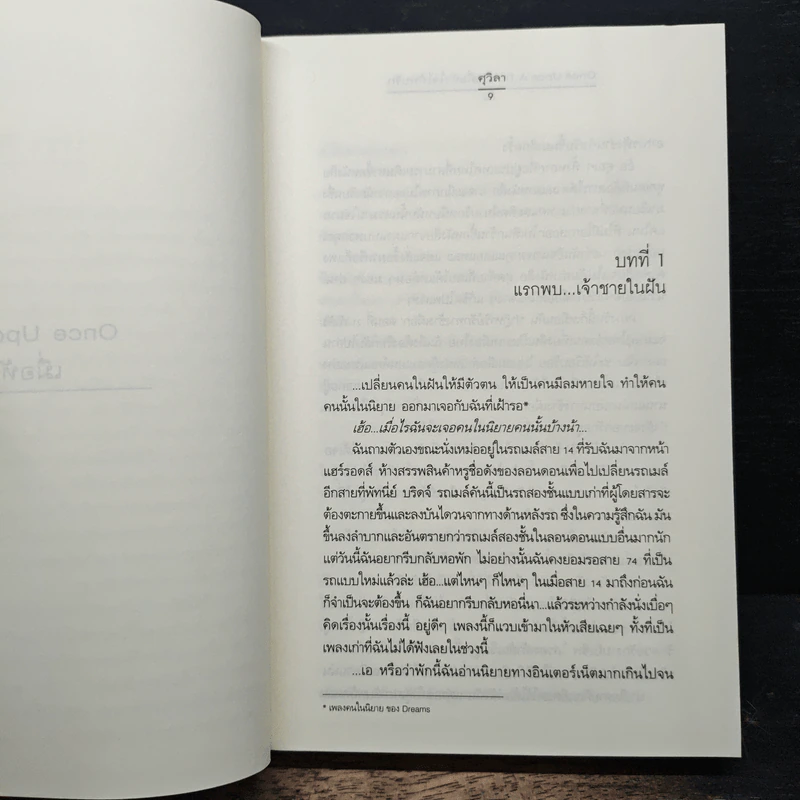 ศุวิลา
9
บทที่ 1
แรกพบ...เจ้าชายในฝัน
...เปลี่ยนคนในฝันให้มีตัวตน ให้เป็นคนมีลมหายใจ ทำให้คน
คนนั้นในนิยาย ออกมาเจอกับฉันที่เฝ้ารอ*
เฮ้อ...เมื่อไรฉันจะเจอคนในนิยายคนนั้นบ้างน้า...
ฉันถามตัวเองขณะนั่งเหม่ออยู่ในรถเมล์สาย 14 ที่รับฉันมาจากหน้า
แฮร์รอดส์ ห้างสรรพสินค้าหรูชื่อดังของลอนดอนเพื่อไปเปลี่ยนรถเมล์
อีกสายที่พัทนีย์ บริดจ์ รถเมล์คันนี้เป็นรถสองชั้นแบบเก่าที่ผู้โดยสารจะ
ต้องตะกายขึ้นและลงบันไดวนจากทางด้านหลังรถ ซึ่งในความรู้สึกฉัน มัน
ขึ้นลงลำบากและอันตรายกว่ารถเมล์สองชั้นในลอนดอนแบบอื่นมากนัก
แต่วันนี้ฉันอยากรีบกลับหอพัก ไม่อย่างนั้นฉันคงยอมรอสาย 74 ที่เป็น
รถแบบใหม่แล้วล่ะ เฮ้อ...แต่ไหนๆ ก็ไหนๆ ในเมื่อสาย 14 มาถึงก่อนฉัน
ก็จำเป็นจะต้องขึ้น ก็ฉันอยากรีบกลับหอนี่นา...แล้วระหว่างกำลังนั่งเบื่อๆ
คิดเรื่องนั้นเรื่องนี้ อยู่ดีๆ เพลงนี้ก็แวบเข้ามาในหัวเสียเฉยๆ ทั้งที่เป็น
เพลงเก่าที่ฉันไม่ได้ฟังเลยในช่วงนี้
...เอ หรือว่าพักนี้ฉันอ่านนิยายทางอินเตอร์เน็ตมากเกินไปจน
* เพลงคนในนิยาย ของ Dreams